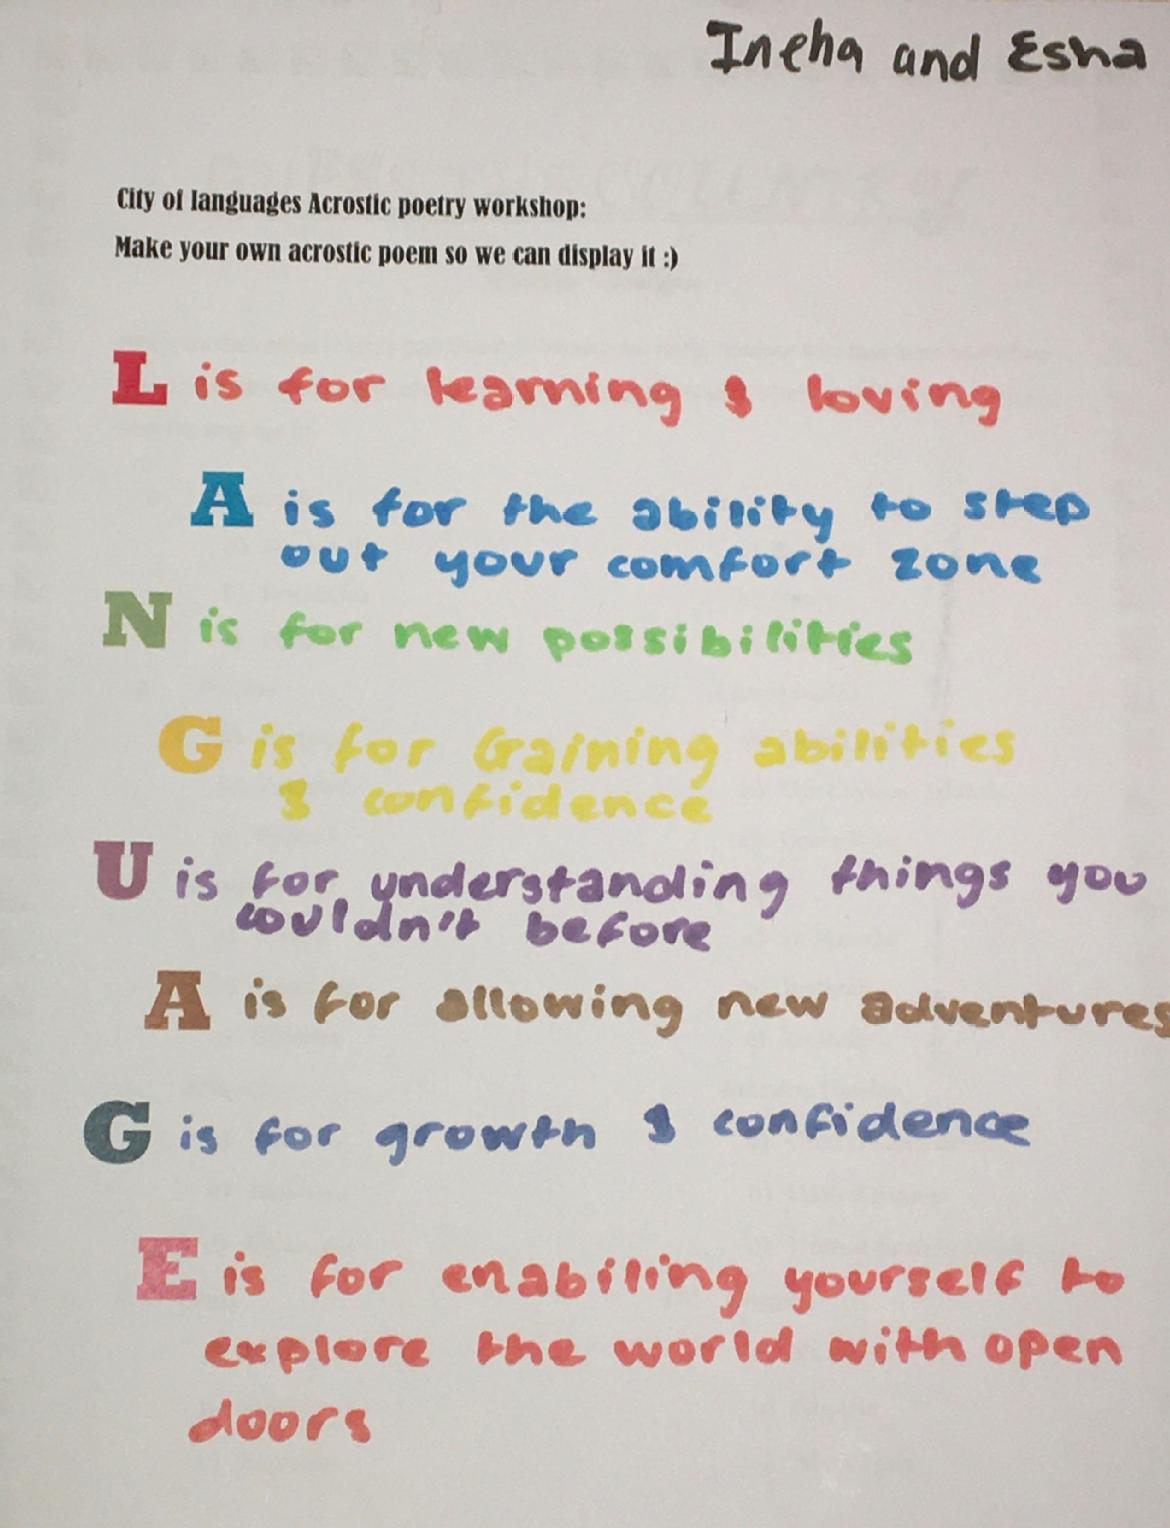 Ineha and Esha
City of languages Acrostic poetry workshop:
Make your own acrostic poem so we can display it :)
L is for learning & loving
A is for the ability to step
out your comfort zone
N is for new possibilities
G is for Gaining abilities
& confidence
U is for understanding things you
couldn't before
A is for allowing new adventures
G is for growth & confidence
E is for enabiling yourself to
explore the world with open
doors